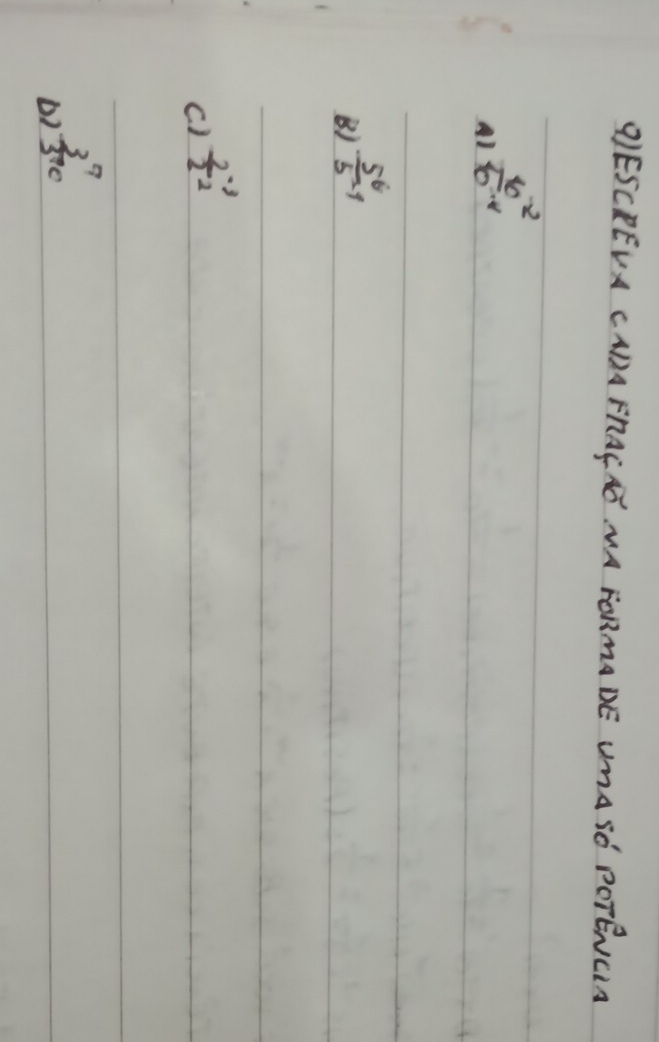 9) ESCREVA CADA FRAÇÃO NA FORMA DE UMA SÓ POTÊNCIA
A) 10⁻²/10⁻⁴
B) 5⁶/5⁻¹
C) 2⁻³/2⁻²
D) 3⁷/3¹⁰